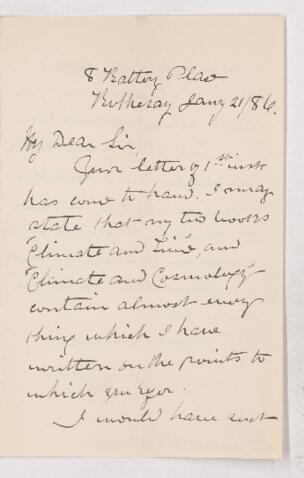 8 Battery Place
Rothesay Jany 21/86.
My Dear Sir,
Your letter of 1st inst
has come to hand. I may
state that my two books
"Climate and Time" and
"Climate and Cosmology"
contain almost every
thing which I have
written on the points to
which you refer.
I would have sent